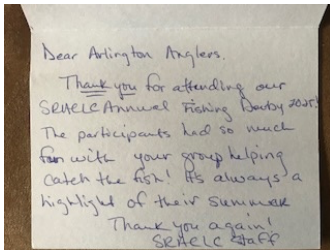 Dear Arlington Anglers.
Thank you for attending our
SRAELC Annual Fishing Derby 2025!
The participants had so much
fun with your group helping
catch the fish! It's always a
highlight of their summer
Thank you again!
SRAELC Staff